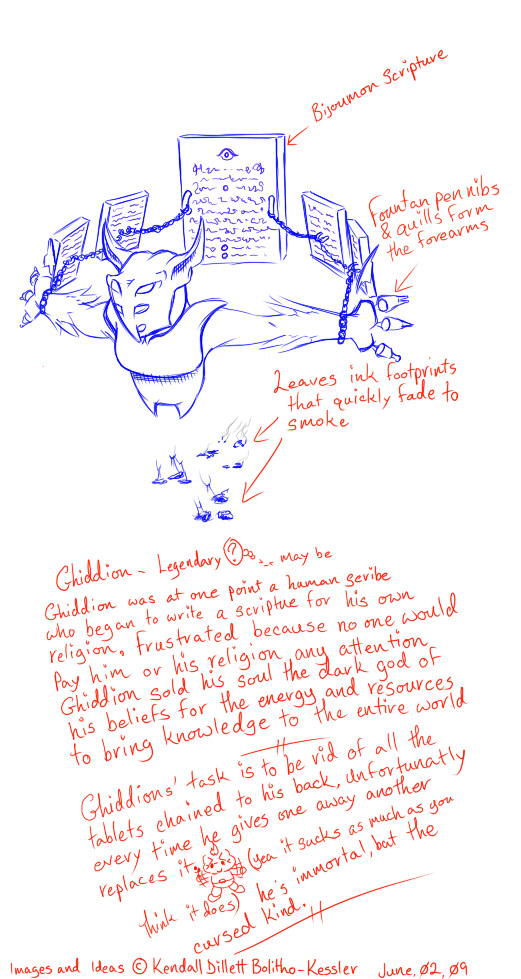 Bijoumon Scripture
Fountan pen nibs
& quills form
the forearms
Leaves ink footprints
that quickly fade to
smoke
Ghiddion - Legendary ? may be
Ghiddion was at one point a human scribe
who began to write a scriptue for his own
religion. Frustrated because no one would
Pay him or his religion any attention
Ghiddion sold his soul the dark god of
his beliefs for the energy and resources
to bring knowledge to the entire world
Ghiddions' task is to be rid of all the
tablets chained to his back, unfortunatly
every time he gives one away another
replaces it. (yea it sucks as much as you
think it does) he's immortal, but the
cursed kind.
Images and Ideas © Kendall Dillett Bolitho-Kessler June, 02, 09